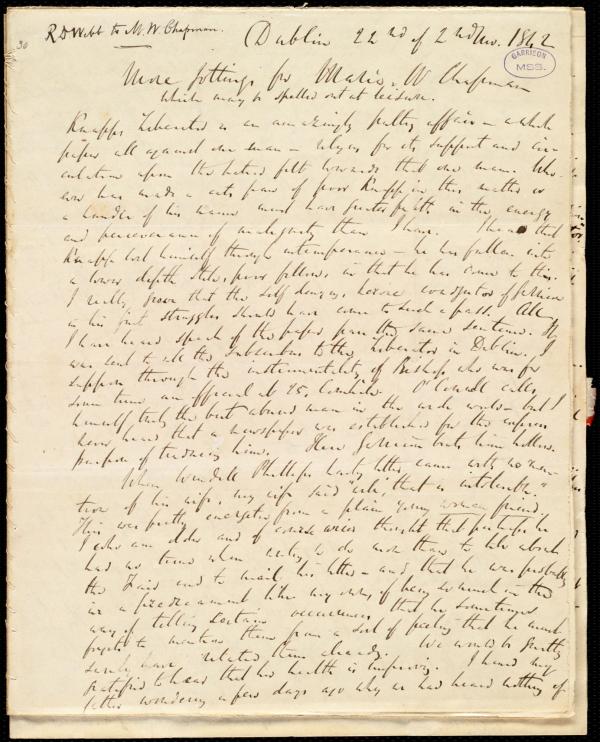 30
R D Webb to M. W. Chapman.
Dublin 22nd of 2nd Mo. 1842
GARRISON
MSS.
More jottings for Maria W Chapman
which may be spelled out at leisure.
Knapp's Liberator is an amazingly paltry affair – a whole
paper all against one man – relying for its support and cir-
culation upon the hatred felt towards that one man. Who-
ever has made a cats paw of poor Knapp in this matter or
a handle of his name must have greater faith in the energy
and perseverance of malignity than I have. I hear that
Knapp lost himself through intemperance – he has fallen into
a lower depth still, poor fellow, in that he has come to this.
I really grieve that the self denying, heroic coadjutor of Garrison
in his first struggles should have come to such a pass. All
I have heard speak of the paper pass the same sentence. It
was sent to all the subscribers to the Liberator in Dublin, I
suppose through the instrumentality of Bishop who was for
some time an official at 25, Cornhill. O'Connell calls
himself truly the best abused man in the wide world – but I
never heard that a newspaper was established for the express
purpose of traducing him. Here Garrison beats him hollow.
When Wendell Phillips' last letter came with no men-
tion of his wife, my wife said "oh, that is intolerable."
This was pretty energetic from a plain young woman friend.
I who am older and of course wiser thought that perhaps he
had no time when writing to do more than to take
the and to mail his letter – and that he was probably
in a predicament like my own, of being so much in the
way of telling certain occurrences that he sometimes
forgets to mention them from a sort of feeling that he must
surely have related them already. We would be greatly
gratified to hear that her health is improving. I heard my
father wondering a few days ago why we had heard nothing of